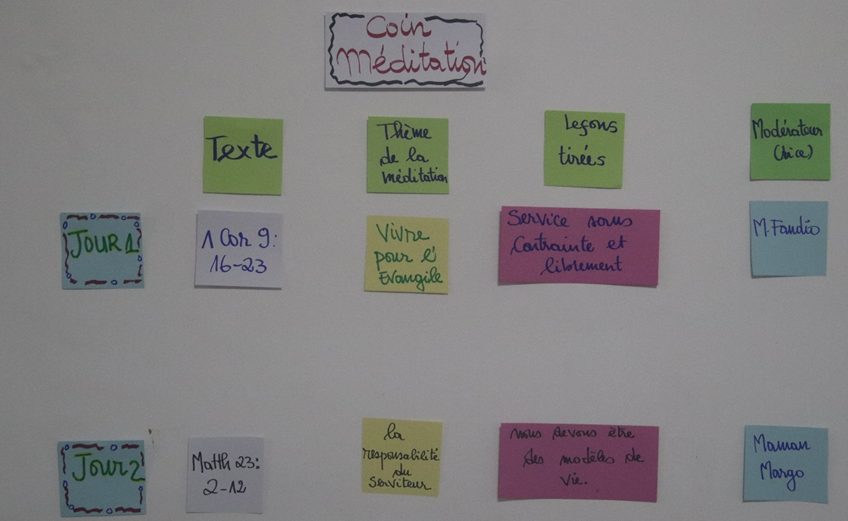 Coin
Méditation
Texte
Thème
de la
méditation
Leçons
tirées
Modérateur
(trice)
JOUR 1
1 Cor 9:
16-23
Vivre
pour l'
Evangile
Service sous
Contrainte et
librement
M. Fandio
Jour 2
Matth 23:
2-12
la
responsabilité
du
Serviteur
nous devons être
des modèles de
vie.
Maman
Margo